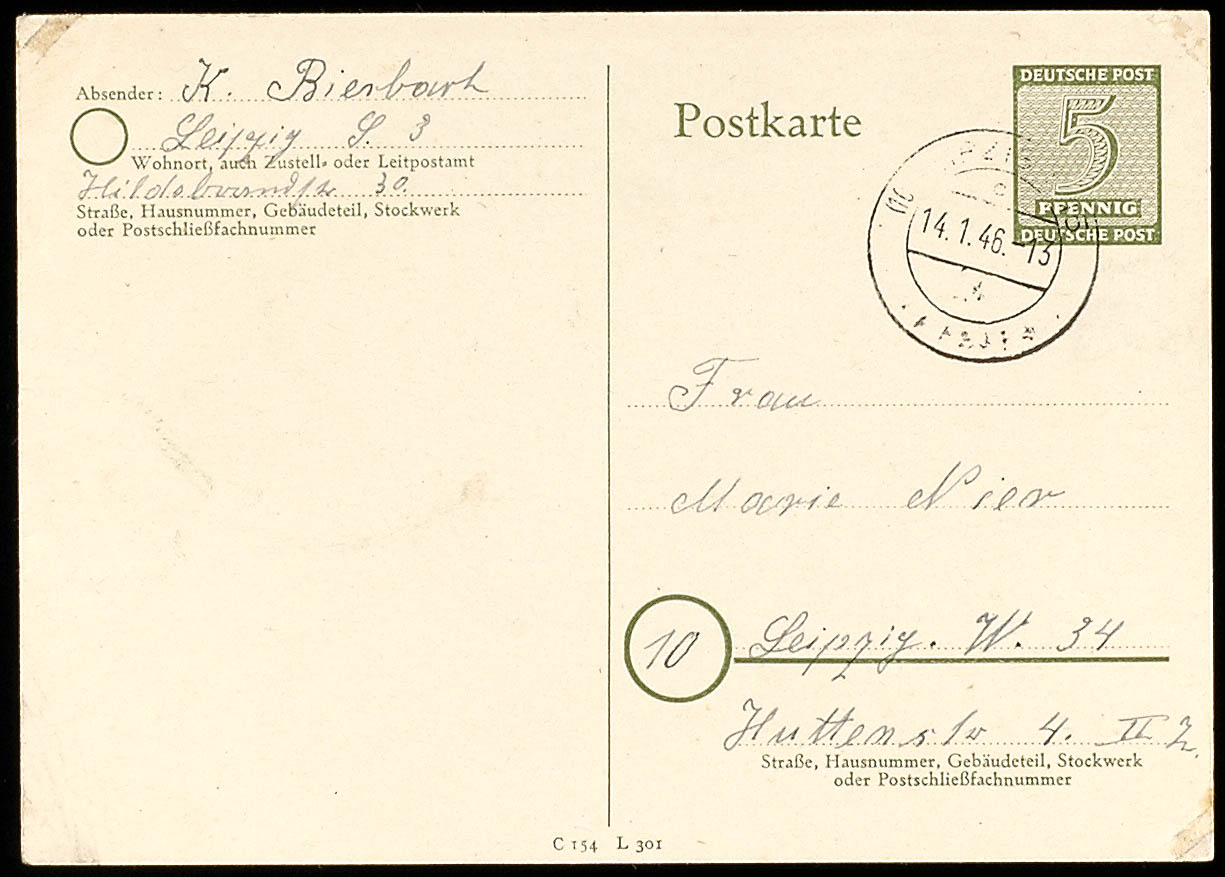 Absender: K. Bierbart
Leipzig S. 3
Wohnort, auch Zustell- oder Leitpostamt
30.
Straße, Hausnummer, Gebäudeteil, Stockwerk
oder Postschließfachnummer
Postkarte
DEUTSCHE POST
5
PFENNIG
DEUTSCHE POST
14.1.46.-13
Frau
Marie Nier
10 Leipzig. W. 34
Huttenstr 4. II
Straße, Hausnummer, Gebäudeteil, Stockwerk
oder Postschließfachnummer
C 154 L 301